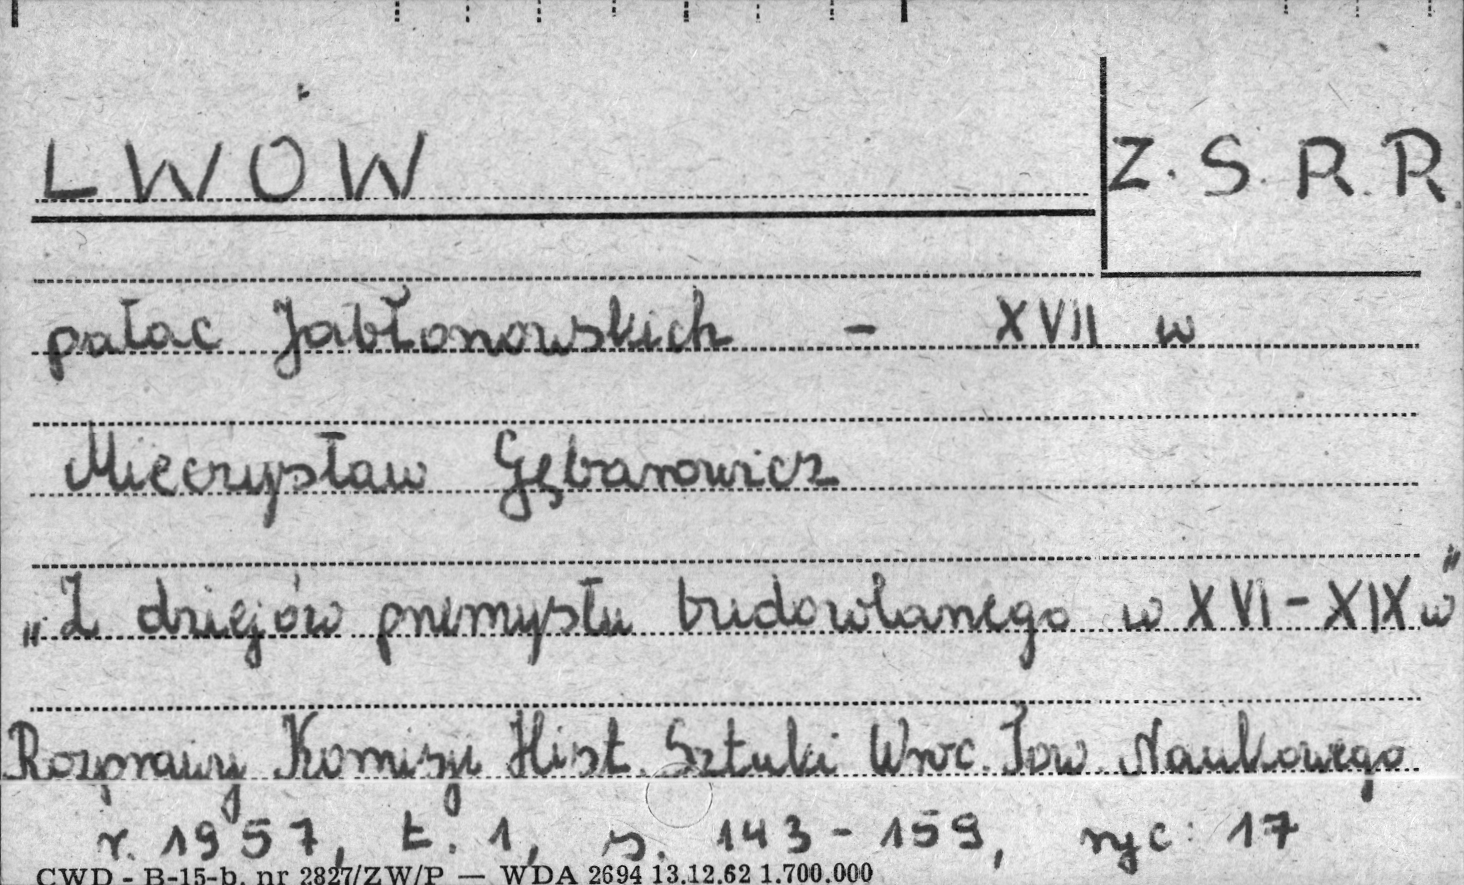 LWÓW
Z.S.R.R.
pałac Jabłonowskich - XVII w
Mieczysław Gębarowicz
„Z dziejów przemysłu budowlanego w XVI-XIX w"
Rozprawy Komisji Hist. Sztuki Wroc. Tow. Naukowego
r. 1957, t. 1, s. 143-159, ryc: 17
CWD - B-15-b. nr 2827/ZW/P — WDA 2694 13.12.62 1.700.000